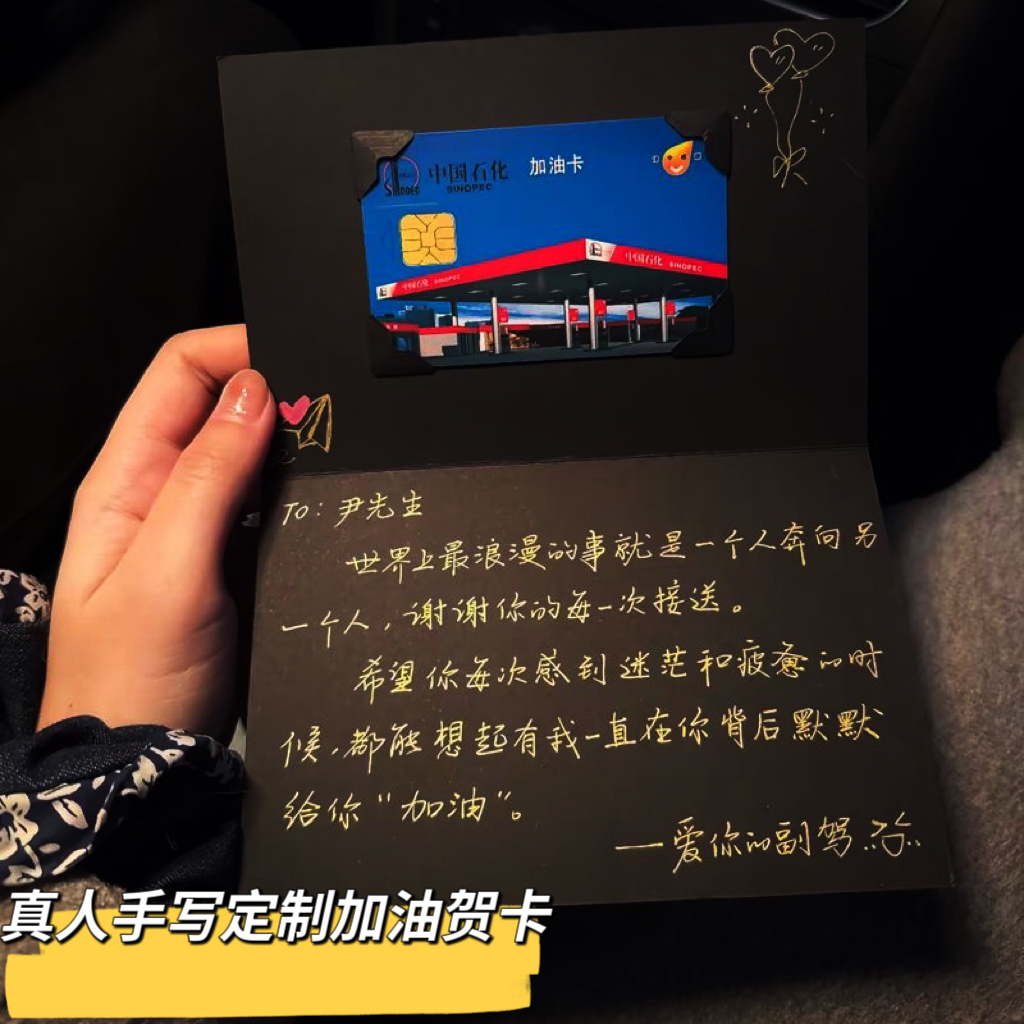 中国石化 加油卡
SINOPEC
SINOPEC
中国石化 SINOPEC
中国石化 SINOPEC
To: 尹先生
世界上最浪漫的事就是一个人奔向另
一个人，谢谢你的每一次接送。
希望你每次感到迷茫和疲惫的时
候，都能想起有我一直在你背后默默
给你“加油”。
—爱你的副驾
真人手写定制加油贺卡